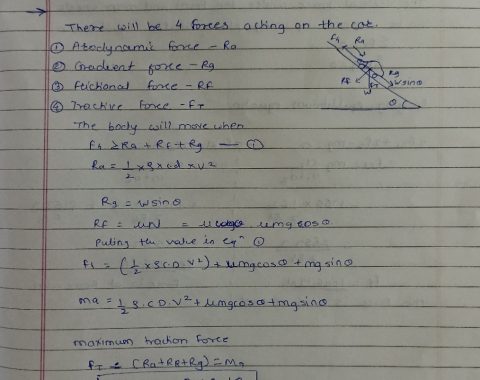 There will be 4 forces acting on the car.
① Aerodynamic force - Ra
② Gradient force - Rg
③ Frictional force - RF
④ Tractive force - FT
The body will move when
Ft ≥ Ra + Rf + Rg — ①
Ra = 1/2 × ρ × cd × v²
Rg = w sinθ
RF = μN = μmg cosθ
Puting the value in eqⁿ ①
Ft = (1/2 × ρ . C.D. V²) + μmg cosθ + mg sinθ
ma = 1/2 ρ . C D. V² + μmg cosθ + mg sinθ
maximum traction force
FT = (Ra + RR + Rg) = Ma
Ft
Ra
Rg
RF
w sinθ
W
θ